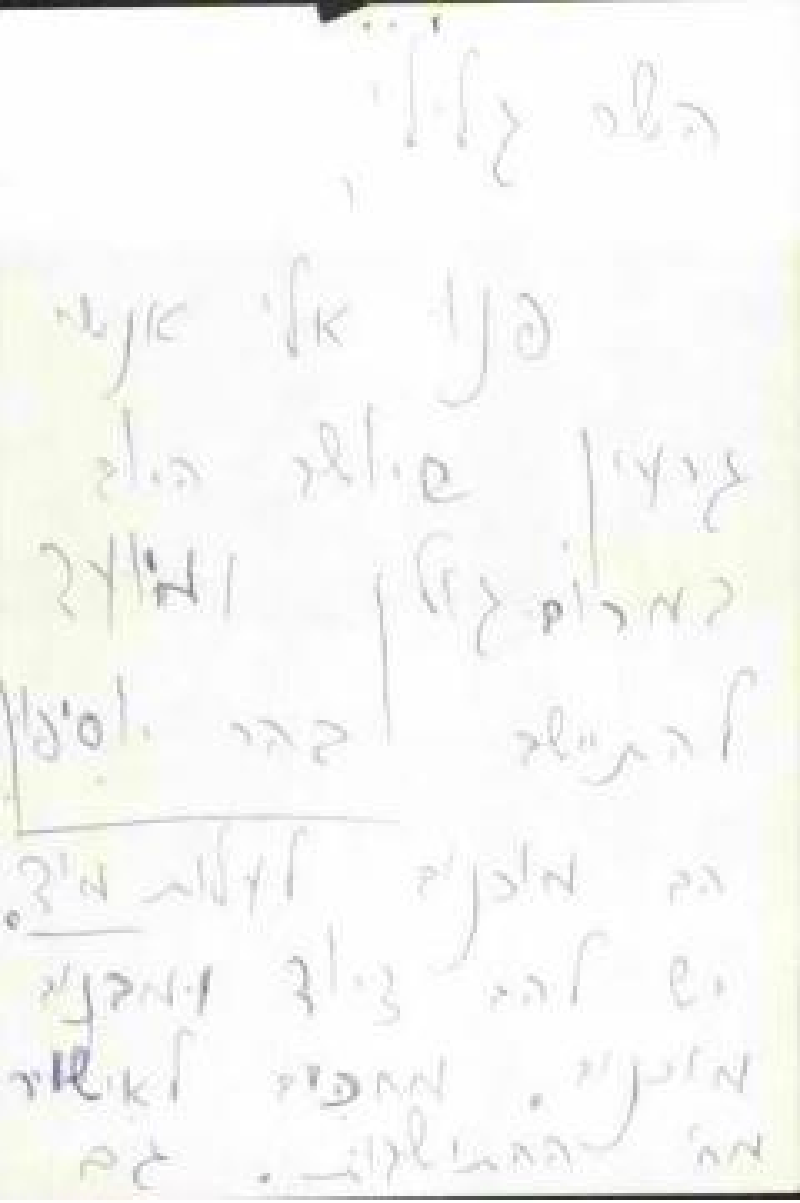 השר גלילי,
פנו אלי אנשי
גרעין שיושב היום
במרום גולן ומיועד
להתיישב בהר יוסיפון
הם מוכנים לעלות מיד.
יש להם ציוד ומבנים
מוכנים. מחכים לאישור
מח' ההתישבות. גם